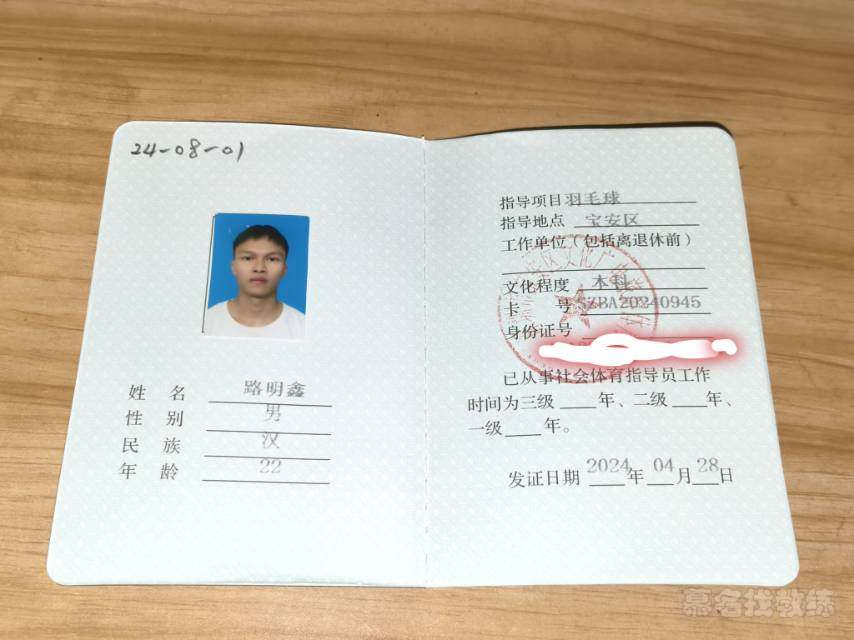 24-08-01
姓 名 路明鑫
性 别 男
民 族 汉
年 龄 22
指导项目羽毛球
指导地点 宝安区
工作单位（包括离退休前）
文化程度 本科
卡 号 SZBA20240945
身份证号
已从事社会体育指导员工作
时间为三级____年、二级____年、
一级____年。
发证日期 2024 年 04 月 28 日
慕名找教练